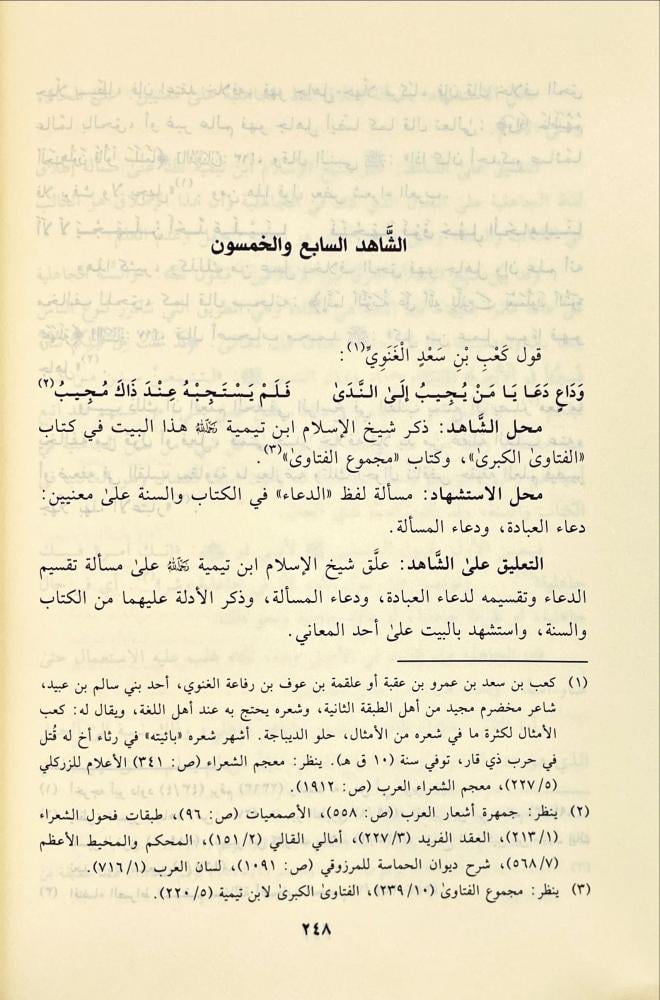 الشَّاهد السابع والخمسون
قول كَعْبِ بْنِ سَعْدٍ الْغَنَوِيِّ(١):
وَدَاعٍ دَعَا يَا مَنْ يُجِيبُ إِلَىٰ النَّدَىٰ فَلَمْ يَسْتَجِبْهُ عِنْدَ ذَاكَ مُجِيبُ(٢)
محل الشَّاهد: ذكر شيخ الإسلام ابن تيمية رَحِمَهُ اللهُ هذا البيت في كتاب
«الفتاوىٰ الكبرىٰ»، وكتاب «مجموع الفتاوىٰ»(٣).
محل الاستشهاد: مسألة لفظ «الدعاء» في الكتاب والسنة علىٰ معنيين:
دعاء العبادة، ودعاء المسألة.
التعليق علىٰ الشَّاهد: علَّق شيخ الإسلام ابن تيمية رَحِمَهُ اللهُ علىٰ مسألة تقسيم
الدعاء وتقسيمه لدعاء العبادة، ودعاء المسألة، وذكر الأدلة عليهما من الكتاب
والسنة، واستشهد بالبيت علىٰ أحد المعاني.
(١) كعب بن سعد بن عمرو بن عقبة أو علقمة بن عوف بن رفاعة الغنوي، أحد بني سالم بن عبيد،
شاعر مخضرم مجيد من أهل الطبقة الثانية، وشعره يحتج به عند أهل اللغة، ويقال له: كعب
الأمثال لكثرة ما في شعره من الأمثال، حلو الديباجة. أشهر شعره «بائيته» في رثاء أخ له قُتل
في حرب ذي قار، توفي سنة (١٠ ق هـ). ينظر: معجم الشعراء (ص: ٣٤١) الأعلام للزركلي
(٢٢٧/٥)، معجم الشعراء العرب (ص: ١٩١٢).
(٢) ينظر: جمهرة أشعار العرب (ص: ٥٥٨)، الأصمعيات (ص: ٩٦)، طبقات فحول الشعراء
(٢١٣/١)، العقد الفريد (٢٢٧/٣)، أمالي القالي (١٥١/٢)، المحكم والمحيط الأعظم
(٥٦٨/٧)، شرح ديوان الحماسة للمرزوقي (ص: ١٠٩١)، لسان العرب (٧١٦/١).
(٣) ينظر: مجموع الفتاوىٰ (٢٣٩/١٠)، الفتاوىٰ الكبرىٰ لابن تيمية (٢٢٠/٥).
٢٤٨